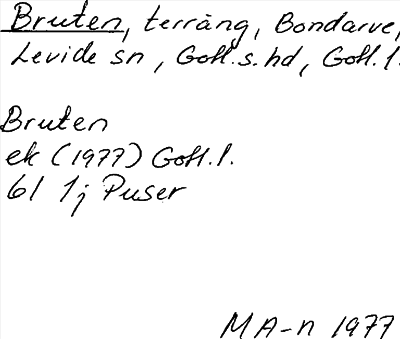 Bruten, terräng, Bondarve,
Levide sn, Gotl.s.hd, Gotl.l.
Bruten
ek (1977) Gotl.l.
6I 1j Puser
MA-n 1977